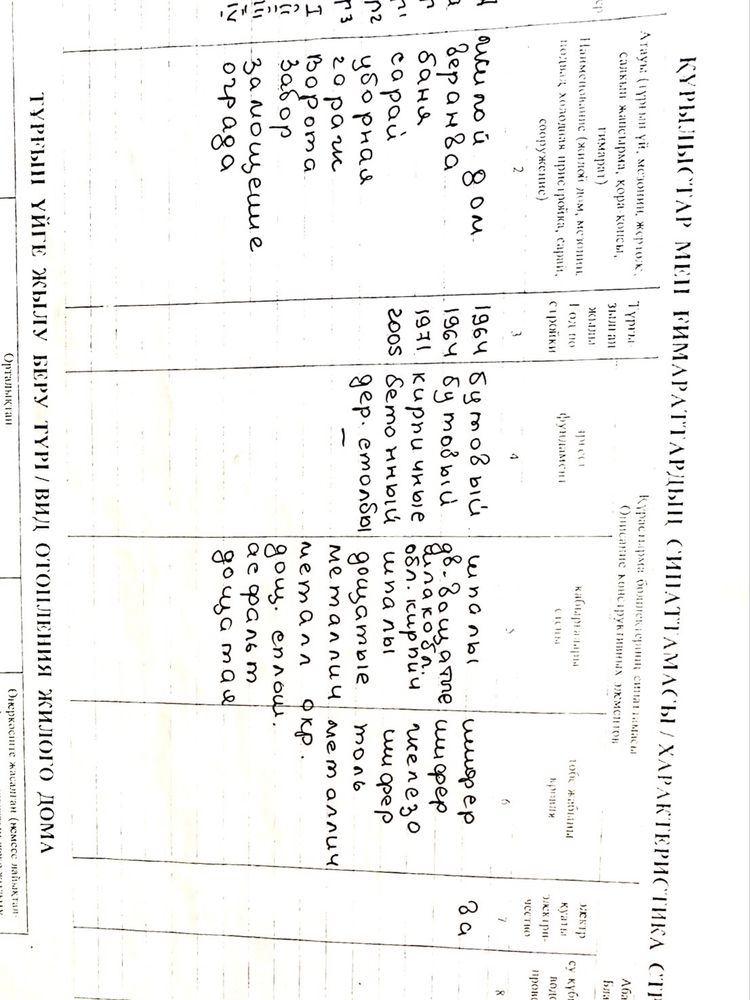 ҚҰРЫЛЫСТАР МЕН ҒИМАРАТТАРДЫҢ СИПАТТАМАСЫ / ХАРАКТЕРИСТИКА СТ
Атауы (тұрғын үй, мезонин, жертөле,
салқын жапсырма, қора-қопсы,
ғимарат)
Наименование (жилой дом, мезонин,
подвал, холодная пристройка, сарай,
сооружение)
Тұрғы-
зылған
жылы
Год по-
стройки
Құрастырма бөлшектерінің сипаттамасы
Описание конструктивных элементов
іргесі
фундамент
қабырғалары
стены
төбе жабыны
кровля
электр
қуаты
электри-
чество
2 3 4 5 6 7 8
жилой дом 1964 бутовый шпалы шифер да
веранда 1964 бутовый дв. дощатые шифер
шлакобл.
баня 1971 кирпичные обл. кирпич железо
сарай 2005 бетонный шпалы шифер
уборная дер. столбы дощатые толь
гараж металлич металлич
I ворота металл окр.
забор дощ. сплош.
замощение асфальт
IV ограда дощатая
ТҰРҒЫН ҮЙГЕ ЖЫЛУ БЕРУ ТҮРІ / ВИД ОТОПЛЕНИЯ ЖИЛОГО ДОМА
Орталықтан
Өнеркәсіпте жасалған (немесе лайықтап-